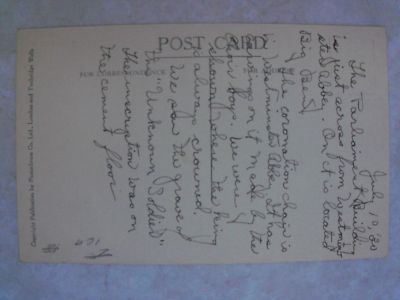 POST CARD
FOR CORRESPONDENCE
July 10, '30
The Parliament Building
is just across from Westmin
ster Abbey. On it is located
Big Ben.
The coronation chair is
in Westminster Abbey. It has
carvings on it made by the
choir boys. We were
shown where the king
is always crowned.
We saw the grave of
the "Unknown Soldier"
The inscription was on
the cement floor
Copyright Publication by Photochrom Co., Ltd., London and Tunbridge Wells